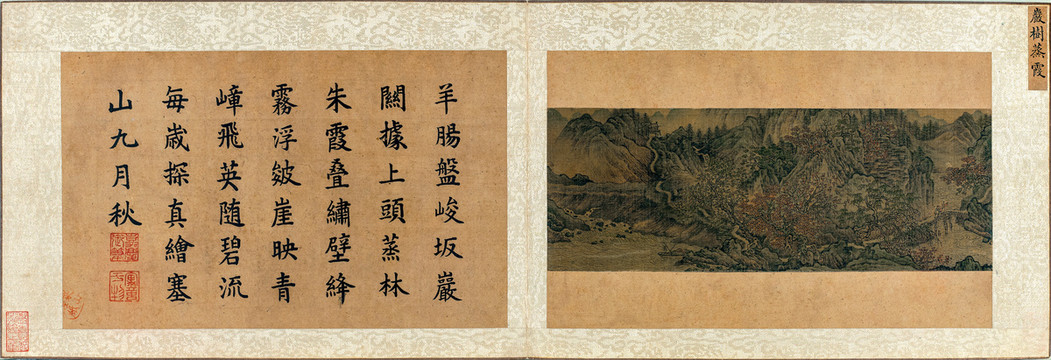 巖樹蒸霞
羊腸盤峻坂巖
闕據上頭蒸林
朱霞叠繡壁絳
霧浮皴崖映青
嶂飛英随碧流
每歲探真繪塞
山九月秋